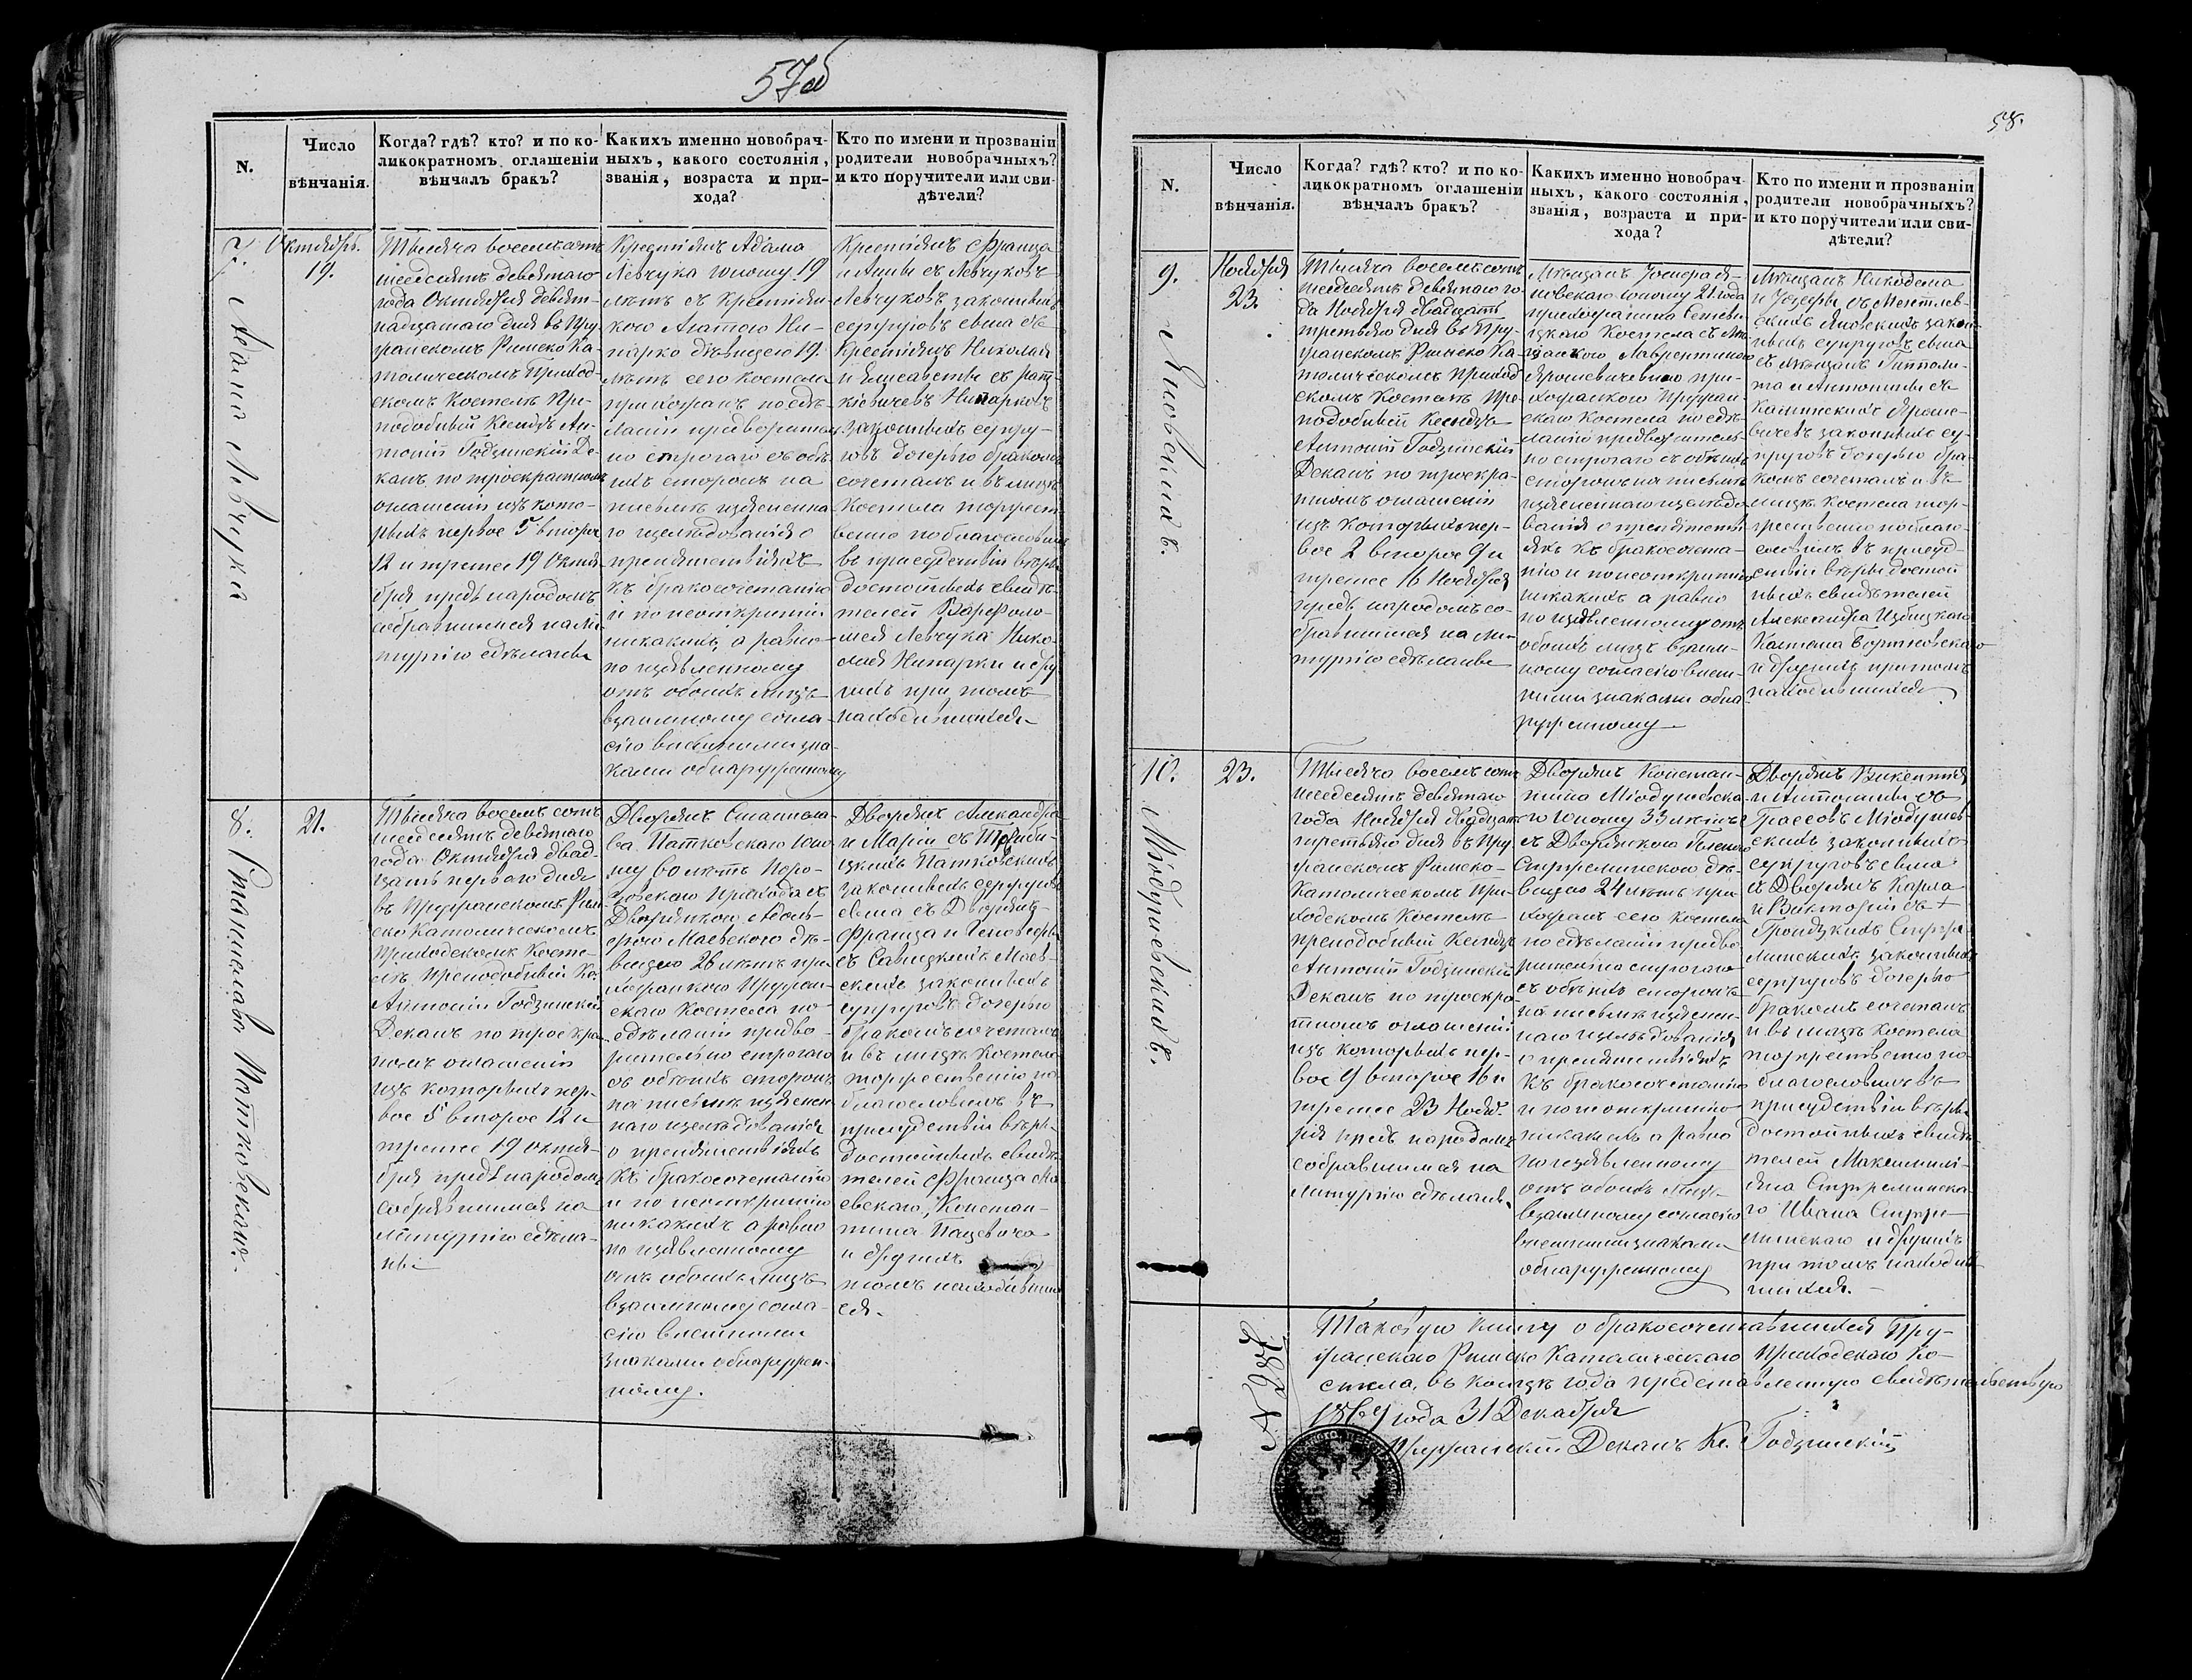 57об
N.
Число
вѣнчанія.
Когда? гдѣ? кто? и по ко-
ликократномъ оглашеніи
вѣнчалъ бракъ?
Какихъ именно новобрач-
ныхъ, какого состоянія,
званія, возраста и при-
хода?
Кто по имени и прозваніи
родители новобрачныхъ?
и кто поручители или сви-
дѣтели?
7.
Адама Левчука
Октября.
19.
Тысяча восемьсотъ
шесдесятъ девятаго
года Октября девят-
надцатаго дня въ Пру-
жанскомъ Римско Ка-
толическомъ Приход-
скомъ Костелѣ Пре-
подобный Ксендзъ Ан-
тоній Годзинскій Де-
канъ по троекратномъ
оглашеніи изъ кото-
рыхъ первое 5 второе
12 и третее 19 Октя-
бря предъ народомъ
собравшимся на ли-
тургію сдѣланы
Крестіянъ Адама
Левчука юношу 19
лѣтъ съ Крестіян-
кою Агатою Ни-
парко дѣвицею 19.
лѣтъ сего Костела
прихожанъ по сдѣ-
ланіи предворитель-
но строгаго съ обѣ-
ихъ сторонъ на
письмѣ изъясненна-
го изслѣдованія о
препятствіяхъ
къ бракосочетанію
и по неоткрытіи
никакихъ, а равно
по изъявленному
отъ обоихъ лицъ
взаимному согла-
сію внешними зна-
ками обнаруженному
Крестіянъ Франца
и Анны съ Левчуковъ
Левчуковъ законныхъ
супруговъ сына съ
Крестіянъ Николая
и Елисаветы съ Рат-
кіевичевъ Нипарковъ
законныхъ супру-
говъ дочерью бракомъ
сочеталъ и въ лицѣ
Костела торжест-
венно поблагословилъ
въ присудствіи вѣры
достойныхъ свидѣ-
телей Варфоло-
мея Левчука Нико-
лая Нипарки и дру-
гихъ при томъ
находившихся
8.
Станислава Патковскаго.
21.
Тысяча восемъ сотъ
шесдесятъ девятаго
года Октября двад-
цать перваго дня
въ Пружанскомъ Рим-
ско Католическомъ
Приходскомъ Косте-
лѣ Преподобный Кс.
Антоній Годзинскій
Деканъ по троекра-
номъ оглашеніи
изъ которыхъ пер-
вое 5 второе 12 и
третее 19 октя-
бря предъ народомъ
собравшимся на
литургію сдѣла-
ны
Дворянъ Станисла-
ва Патковскаго юно-
шу 60 лѣтъ
Прихода съ
Дворянкою
Маевскою дѣ-
вицею 26 лѣтъ при-
хожанкою Пружан-
скаго Костела по
сдѣланіи предво-
рительно строгаго
съ обѣихъ сторонъ
на письмѣ изъяснен-
наго изслѣдованія
о препятствіяхъ
къ бракосочетанію
и по неоткрытію
никакихъ а равно
по изъявленному
отъ обоихъ лицъ
взаимному согла-
сію внешними
знаками обнаружен-
ному.
Дворянъ Александра
и Маріи съ
Патковскихъ
законныхъ супруговъ
сына съ Дворянъ
Франца и Геновефы
съ Савицкихъ Маев-
скихъ законныхъ
супруговъ дочерью
бракомъ сочеталъ
и въ лицѣ Костела
торжественно по-
благословилъ въ
присудствіи вѣры
достойныхъ свидѣ-
телей Франца Ма-
евскаго, Констан-
тина Пацевича
и другихъ
томъ находивших-
ся
58.
N.
Число
вѣнчанія.
Когда? гдѣ? кто? и по ко-
ликократномъ оглашеніи
вѣнчалъ бракъ?
Какихъ именно новобрач-
ныхъ, какого состоянія,
званія, возраста и при-
хода?
Кто по имени и прозваніи
родители новобрачныхъ?
и кто поручители или сви-
дѣтели?
9.
Яновскихъ.
Ноября
23.
Тысяча восемьсотъ
шесдесятъ девятаго го-
да Ноября двадцать
третьяго дня въ Пру-
жанскомъ Римско Ка-
толическомъ приход-
скомъ Костелѣ Пре-
подобный Ксендзъ
Антоній Годзинскій
Деканъ по троекра-
тномъ оглашеніи
изъ которыхъ пер-
вое 2 второе 9 и
третее 16 Ноября
предъ народомъ со-
бравшимся на ли-
тургію сдѣланы
Мѣщанъ Іосифа Я-
новскаго юношу 21 года
прихожанина
Костела съ Мѣ-
щанкою Лаврентиною
Ярошевичевною при-
хожанкою Пружан-
скаго Костела по сдѣ-
ланію предворитель-
но строгаго съ обѣихъ
сторонъ на письмѣ
изъясненнаго изслѣдо-
ванія о препятстві-
яхъ къ бракосочета-
нію и по неоткрытію
никакихъ а равно
по изъявленному отъ
обоихъ лицъ взаим-
ному согласію внеш-
ними знаками обна-
руженному
Мѣщанъ Никодима
и Іозефы съ
Яновскихъ закон-
ныхъ супруговъ сына
съ мѣщанъ Гипполи-
та и Антонины съ
Калинскихъ Яроше-
вичевъ законныхъ су-
пруговъ дочерью бра-
комъ сочеталъ и въ
лицѣ Костела тор-
жественно поблаго-
словилъ въ присуд-
ствіи вѣры достой-
ныхъ свидѣтелей
Александра Избицкаго
Бортновскаго
и другихъ при томъ
находившихся
10.
Міодушевскихъ.
23.
Тысяча восемъ сотъ
шесдесятъ девятаго
года Ноября двадцать
третьяго дня въ Пру-
жанскомъ Римско-
Католическомъ При-
ходскомъ Костелѣ
преподобный Ксендзъ
Антоній Годзинскій
Деканъ по троекра-
тномъ оглашеніи
изъ которыхъ пер-
вое 9 второе 16 и
третее 23 Нояб-
ря предъ народомъ
собравшимся на
литургію сдѣланы
Дворянъ Констан-
тина Міодушевска-
го юношу 33 лѣтъ
съ Дворянкою Еленою
дѣ-
вицею 24 лѣтъ при-
хожанъ сего костела
по сдѣланіи предво-
рительно строгаго
съ обѣихъ сторонъ
на письмѣ изъяснен-
наго изслѣдованія
о препятствіяхъ
къ бракосочетанію
и по неоткрытію
никакихъ а равно
по изъявленному
отъ обоихъ лицъ
взаимному согласію
внешними знаками
обнаруженному
Дворянъ Викентія
и Антонины съ
Грассовъ Міодушев-
скихъ законныхъ
супруговъ сына
съ Дворянъ Карла
и Викторіи съ
законныхъ
супруговъ дочерью
бракомъ сочеталъ
и въ лицѣ Костела
торжественно по-
благословилъ въ
присудствіи вѣры
достойныхъ свидѣ-
телей Максимилі-
яна
го Ивана
и другихъ
при томъ находив-
шихся.
N 287
Таковую книгу о бракосочетавшихся Пру-
жанскаго Римско Католическаго Приходскаго Ко-
стела, въ концѣ года представленную свидѣтельствую
1869 года 31 Декабря
Пружанскій Деканъ Кс. Годзинскій